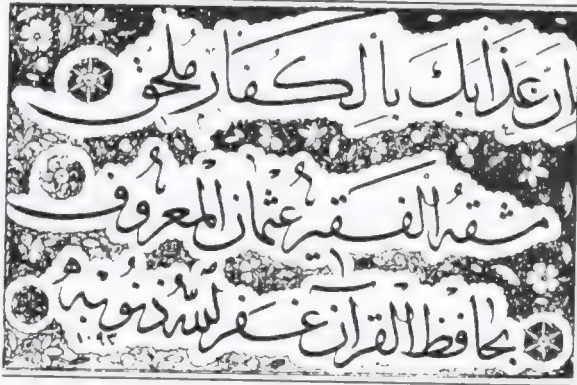 اِنَّ عَذَابَكَ بِالْكُفَّارِ مُلْحِقٌ
مشقه الفقير عثمان المعروف
بحافظ القرآن غفر الله ذنوبه
١٠٩٣